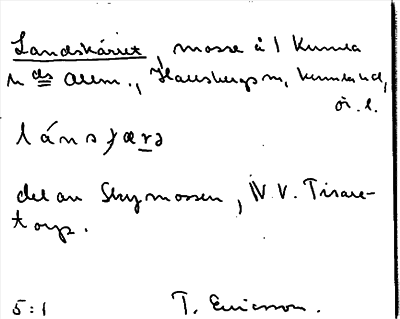 Landskäret, mosse å l Kumla
n ds Allm., Hausbergs m, Kumla hd,
ör. l.
lánsʃærə
del av Skymossen, N.V. Tisare-
torp.
5:1 T. Ericsson.